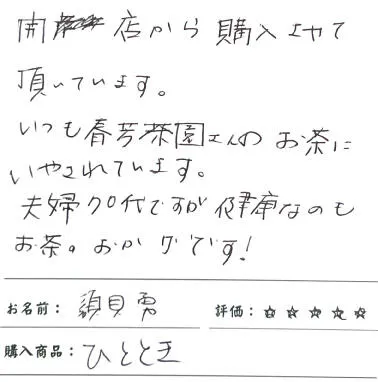 開店から購入させて
頂いています。
いつも春芳茶園さんの お茶に
いやされています。
夫婦70代ですが 健康なのも
お茶。おかげです!
お名前： 須貝 勇
評価：☆ ☆ ☆ ☆ ☆
購入商品： ひととき